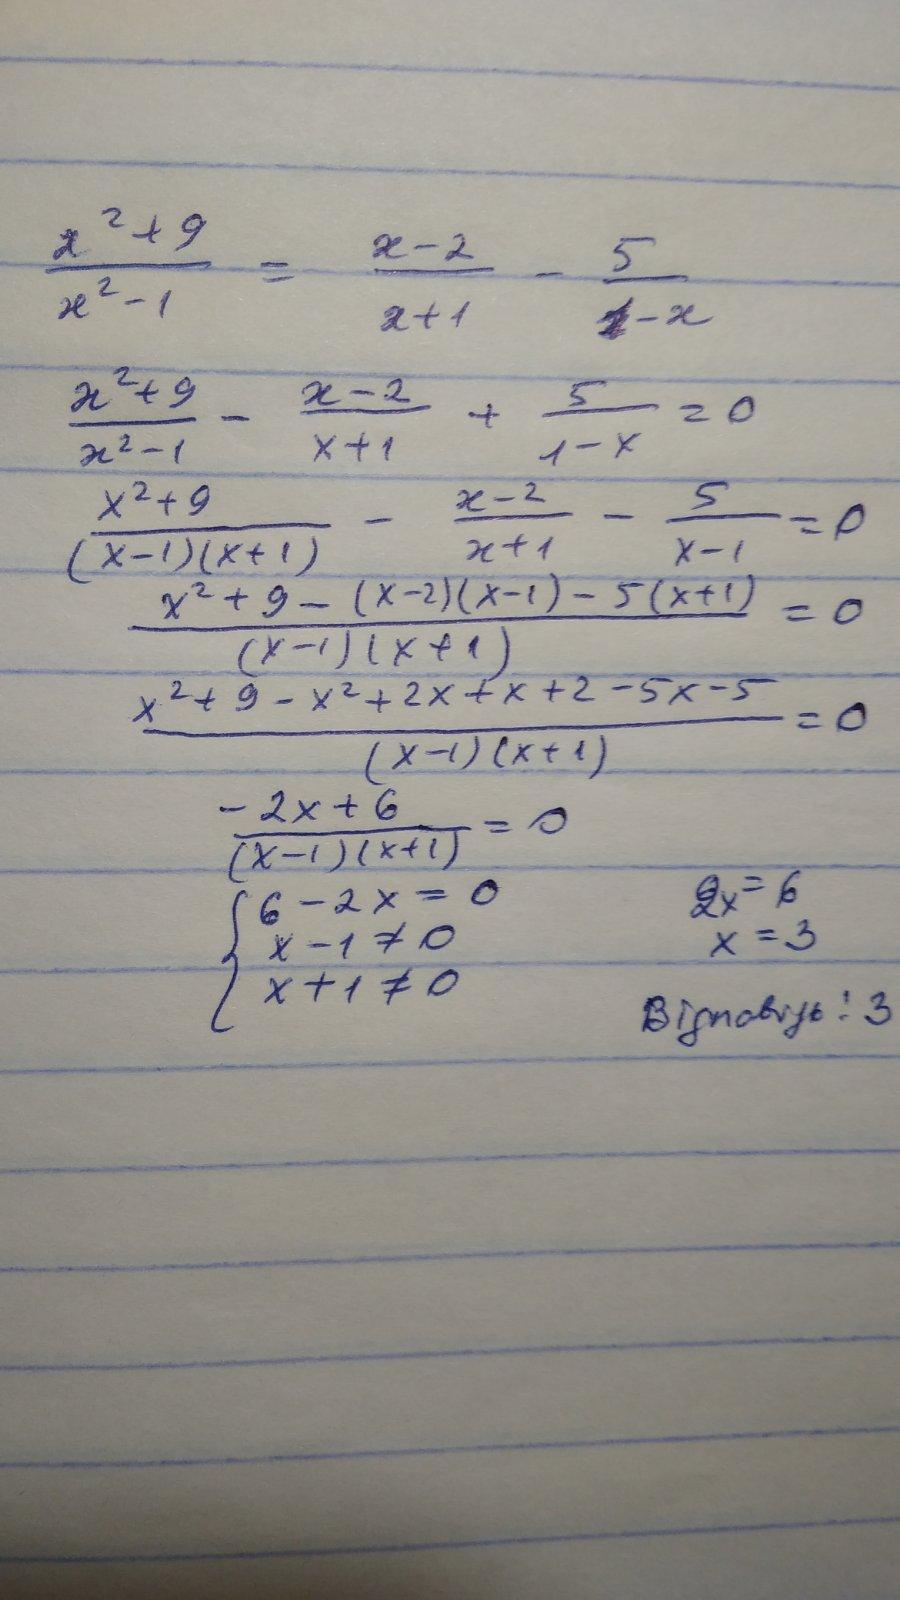 (x²+9)/(x²-1) = (x-2)/(x+1) - 5/(1-x)
(x²+9)/(x²-1) - (x-2)/(x+1) + 5/(1-x) = 0
(x²+9)/((x-1)(x+1)) - (x-2)/(x+1) - 5/(x-1) = 0
(x²+9-(x-2)(x-1)-5(x+1))/((x-1)(x+1)) = 0
(x²+9-x²+2x+x+2-5x-5)/((x-1)(x+1)) = 0
(-2x+6)/((x-1)(x+1)) = 0
{ 6-2x=0
x-1≠0
x+1≠0
2x=6
x=3
Відповідь: 3